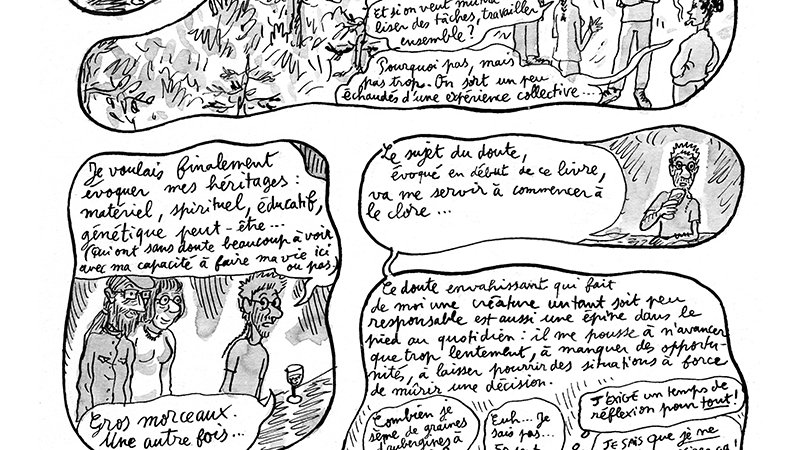 Et si on veut
liser des tâches, travailler
ensemble?
Pourquoi pas, mais
pas trop. On sort un peu
échaudés d'une expérience collective...
Je voulais finalement
évoquer mes héritages :
matériel, spirituel, éducatif,
génétique peut-être...
(Qui ont sans doute beaucoup à voir
avec ma capacité à faire ma vie ici
ou pas)
Gros morceaux.
Une autre fois...
Le sujet du doute,
évoqué en début de ce livre,
va me servir à commencer à
le clore...
Ce doute envahissant qui fait
de moi une créature un tant soit peu
responsable est aussi une épine dans le
pied au quotidien : il me pousse à n'avancer
que trop lentement, à manquer des opportu-
nités, à laisser pourrir des situations à force
de mûrir une décision.
Combien je
sème de graines
d'aubergines à
Euh... Je
sais pas...
J'EXIGE un temps de
réflexion pour tout!
JE SAIS que je ne